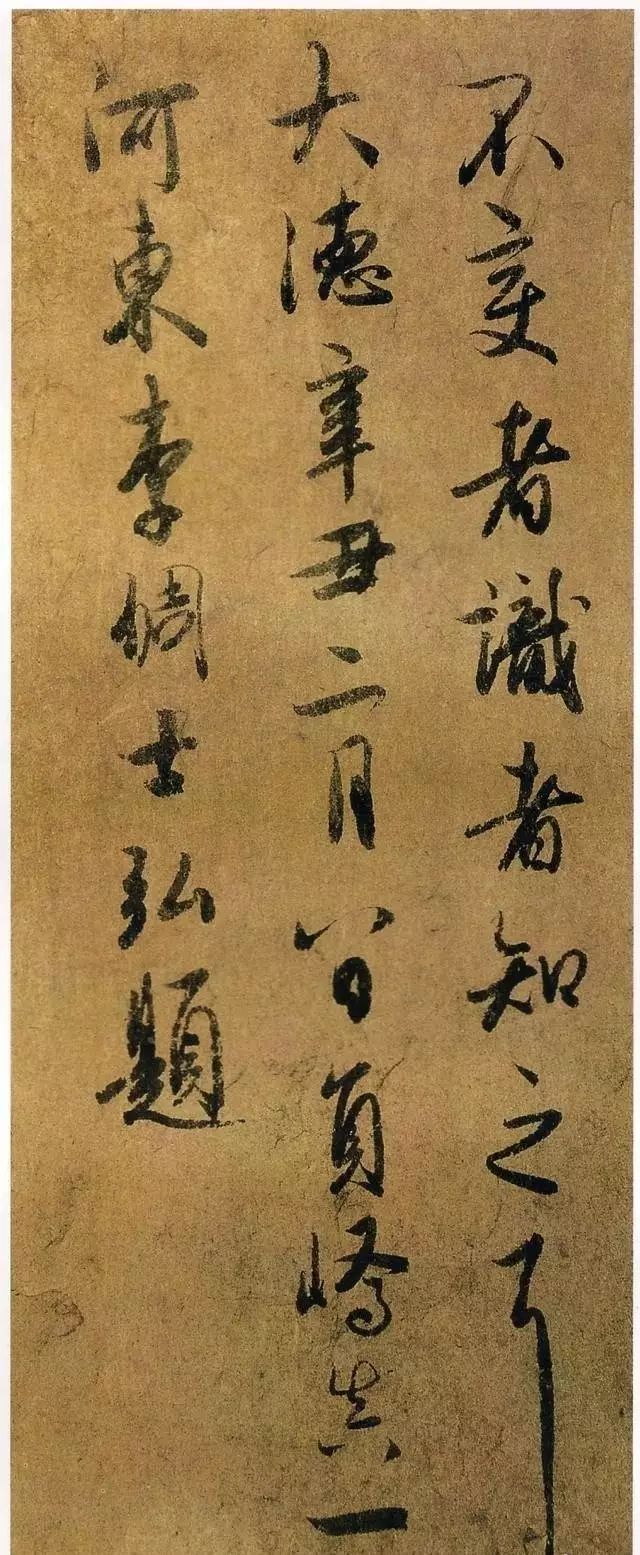 不变者識者知之耳
大德辛丑二月八日員嶠真一
河東李倜士弘題